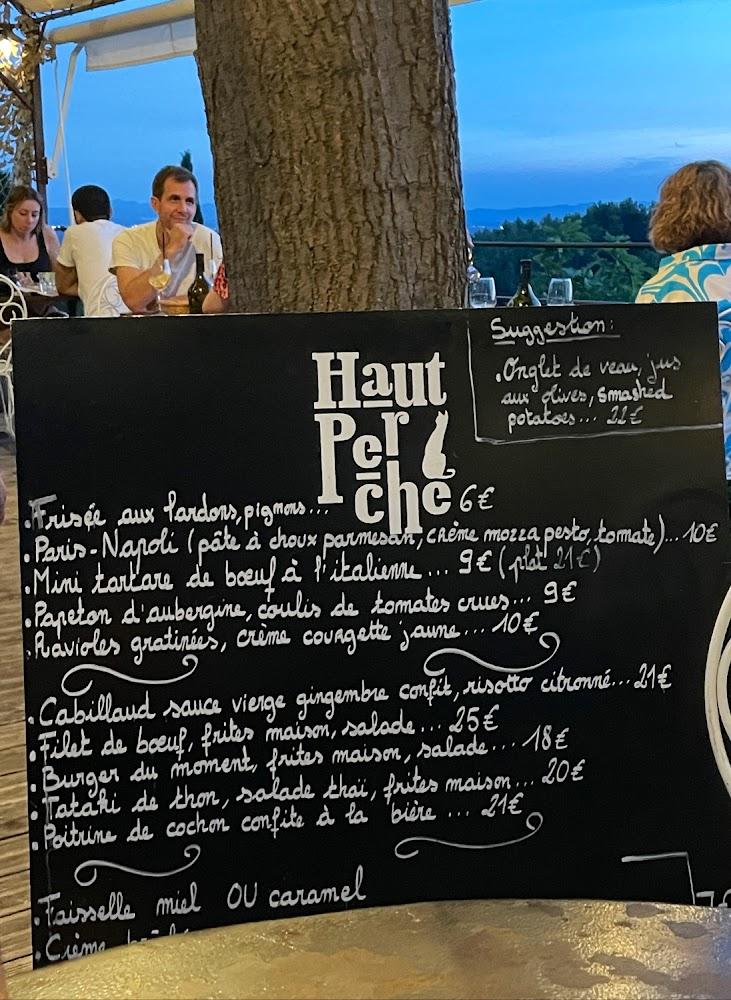 Haut
Per
ché
Suggestion:
. Onglet de veau, jus
aux olives, smashed
potatoes... 22€
. Frisée aux lardons, pignons... 6€
. Paris-Napoli (pâte à choux parmesan, crème mozza pesto, tomate)... 10€
. Mini tartare de bœuf à l'italienne ... 9€ (plat 21€)
. Papeton d'aubergine, coulis de tomates crues... 9€
. Ravioles gratinées, crème courgette jaune... 10€
. Cabillaud sauce vierge gingembre confit, risotto citronné... 21€
. Filet de bœuf, frites maison, salade... 25€
. Burger du moment, frites maison, salade... 18€
. Tataki de thon, salade thaï, frites maison... 20€
. Poitrine de cochon confite à la bière ... 21€
. Faisselle miel OU caramel
. Crème